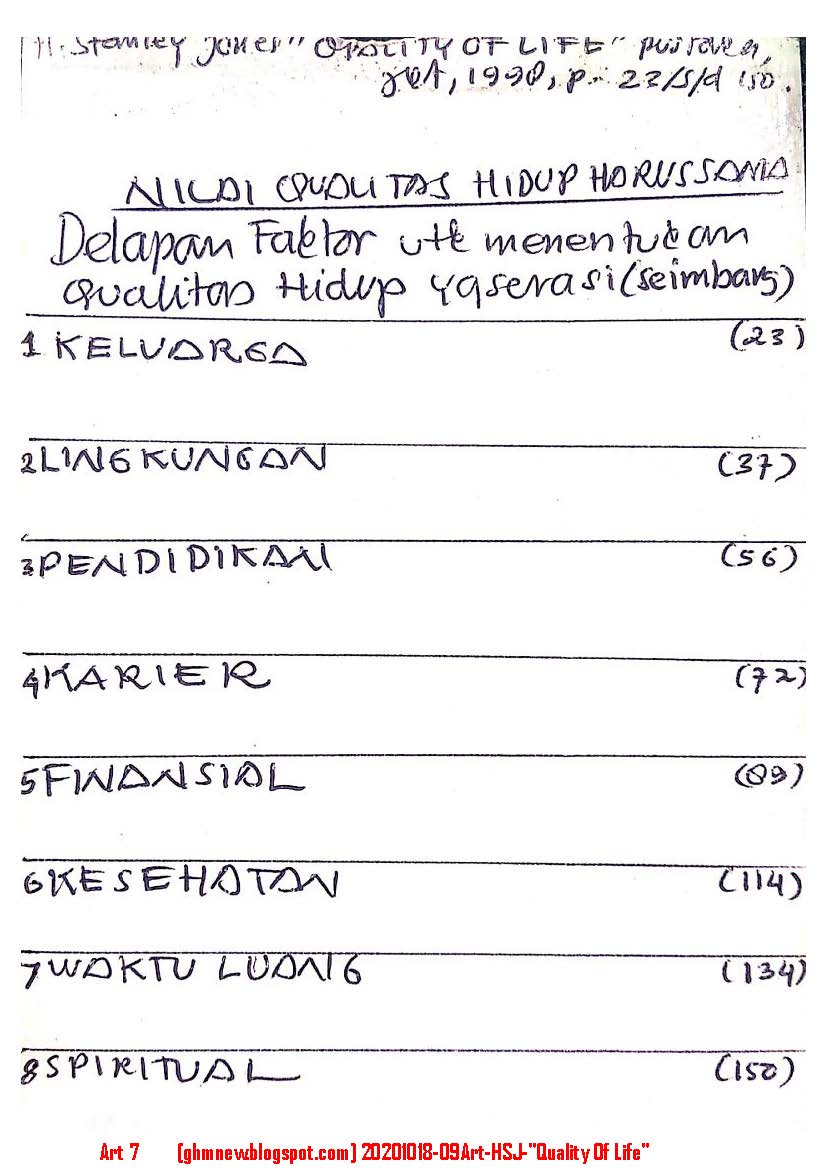 H. Stanley Jones "QUALITY OF LIFE" pustaka,
JKT, 1990, p. 23/s/d 150.
NILAI QUALITAS HIDUP HARUS SAMA
Delapan Faktor utk menentukan
Qualitas Hidup yg serasi (seimbang)
1 KELUARGA (23)
2 LINGKUNGAN (37)
3 PENDIDIKAN (56)
4 KARIER (72)
5 FINANSIAL (89)
6 KESEHATAN (114)
7 WAKTU LUANG (134)
8 SPIRITUAL (150)
Art 7 (ghmnew.blogspot.com) 20201018-09Art-HSJ-"Quality Of Life"